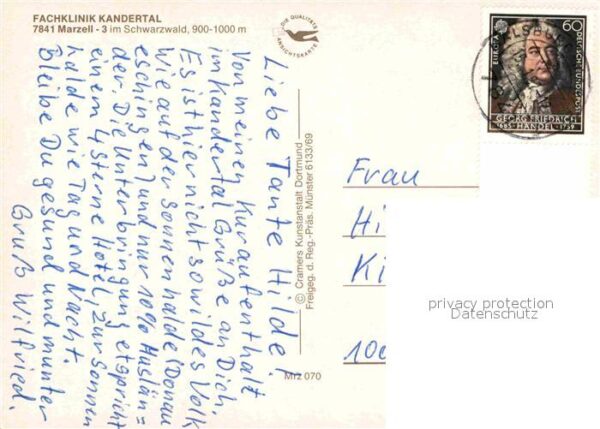 FACHKLINIK KANDERTAL
7841 Marzell - 3 im Schwarzwald, 900-1000 m
DIE QUALITÄTS
ANSICHTSKARTE
Liebe Tante Hilde!
Von meinen Kuraufenthalt
im Kandertal Grüße an Dich.
Es ist hier nicht so wildes Volk
wie auf der Sonnenhalde (Donau
eschingen) und nur 10% Auslän=
der. Die Unterbringung etspricht
einem 4 Sterne Hotel, zur Sonnen
halde wie Tag und Nacht.
Bleibe Du gesund und munter
Gruß Wilfried.
© Cramers Kunstanstalt Dortmund
Freigeg. d. Reg.-Präs. Münster 6133/69
Mrz 070
EUROPA
60
DEUTSCHE BUNDESPOST
GEORG FRIEDRICH
1685 HÄNDEL 1759
Frau
Hi
Ki
100
privacy protection
Datenschutz